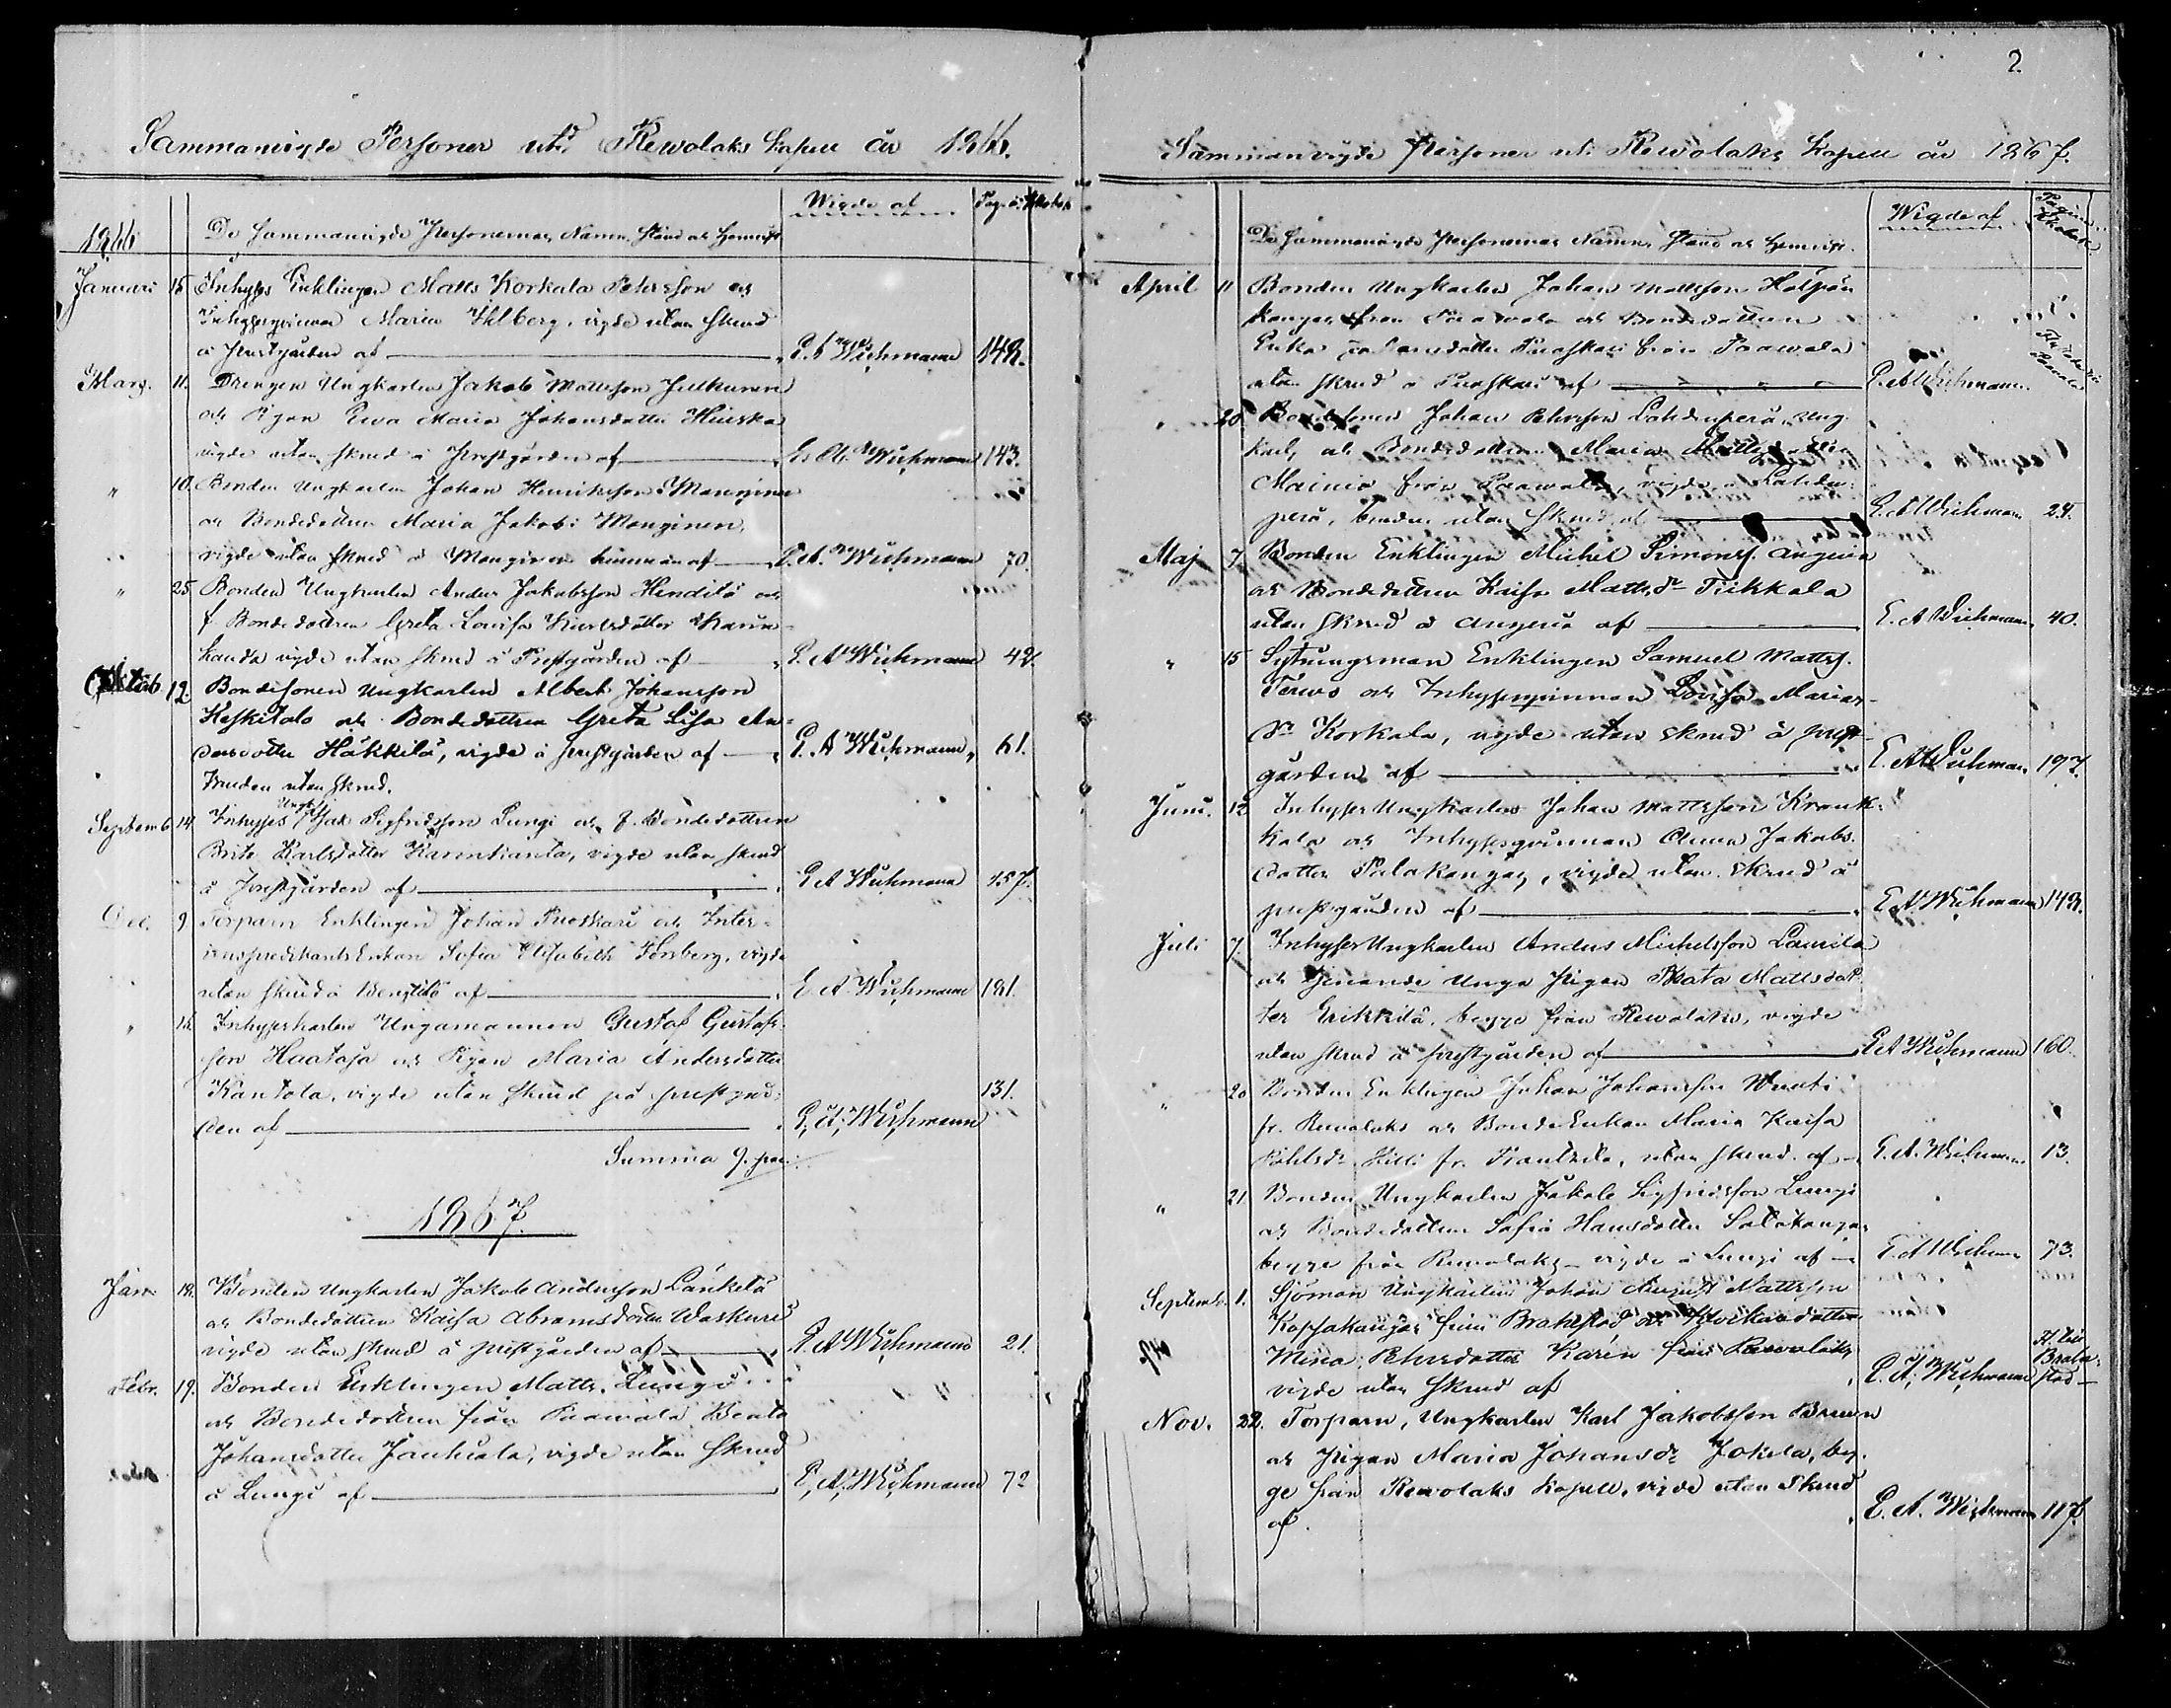 Sammanvigde Personer uti Rewolaks Kapell år 1866.
Wigde af Pag. i
1866 De Sammanvigde Personernas Namn, Stånd och Hemvist
Januari 15 Inhyses Enklingen Matts Korkala Petersson och
Inhysesqvinnan Maria Ihlberg, vigde utan skrud
å prestgården af E. A. Wichmann 148.
Mars. 11. Drengen Ungkarlen Jakob Mattsson Julkunen
och Pigan Ewa Maria Johansdotter
vigde utan skrud å Prestgården af E. A. Wichmann 143.
" 10. Bonden Ungkarlen Johan Henriksson Manginen
och Bondedottren Maria Jakobi Manginen,
vigde utan skrud å Manginen hemman af E. A. Wichmann 70.
" 25. Bonden Ungkarlen Anders Jakobsson Hendilä och
f Bondedottren Greta Lovisa Karlsdotter Karin-
kanta vigde utan skrud å Prestgården af E. A. Wichmann 42.
12. Bondesonen Ungkarlen Albert Johansson
Keskitalo och Bondedottren Greta Lisa An-
dersdotter Häkkilä, vigde å prestgården af E. A. Wichmann 61.
bruden utan skrud.
Septemb 14. Inhyses Ungk. Isak Sigfridsson Lungi och f. Bondedottren
Brita Karlsdotter Karinkanta, vigde utan skrud
å prestgården af E A Wichmann 157.
Dec. 9. Torparn Enklingen Johan Puoskari och Inter-
imspredikants Enkan Sofia Elisabeth Forsberg, vigde
utan skrud å Bengtilä af E A. Wichmann 181.
" 16. Inhyseskarlen Ungamannen Gustaf Gustafs-
son Haataja och Pigan Maria Andersdotter
Kantola, vigde utan skrud på prestgår- 131.
den af E. A. Wichmann
Summa 9. par.
1867.
Jan. 18. Bonden Ungkarlen Jakob Andersson Lankela
och Bondedottren Kaisa Abramsdotter Waskuri
vigde utan skrud å prestgården af E. A Wichmann 21.
Febr. 19. Bonden Enklingen Matts. Lungi
och Bondedottren från Paawola Beata
Johansdotter Jauhiala, vigde utan skrud
å Lungi af E. A. Wichmann 72
2.
Sammanvigde Personer uti Rewolaks Kapell år 1867.
De Sammanvigde Personernas Namn, Stånd och Hemvist. Wigde af Pagina
April 11 Bonden Ungkarlen Johan Mattsson
kangas från Paawola och Bondedottren
Erika Puoskari från Paawola
utan skrud å Puoskari af E. A Wichmann.
" 20. Bondesonen Johan Petersson Lahdenperä, Ung-
karl, och Bondedottren Maria Mattsdotter
från Paawola, vigde å Lahden-
perä, bruden utan skrud af E. A Wichmann 24.
Maj 7. Bonden Enklingen Michel Simonss. Angeria
och Bondedottren Kaisa Mattsdr Tiikkala
utan skrud å Angeria af E. A Wichmann 40.
" 15 Sytningsman Enklingen Samuel Mattss.
Terwo och Inhysespinnan Lovisa Marias-
dr Korkala, vigde utan skrud å prest-
gården af E. A Wichman 197.
Juni. 12 Inhyses Ungkarlen Johan Mattsson Krank-
kala och Inhysesqvinnan Anna Jakobs-
dotter Palokangas, vigde utan skrud å
prestgården af E. A Wichmann 148.
Juli 7. Inhyses Ungkarlen Anders Michelsson Laurila
och tjenande Unga Pigan Beata Mattsdot-
ter Erikkilä, begge från Rewolaks, vigde
utan skrud å prestgården af E A Wichmann 160.
" 20 Bonden Enklingen Johan Johansson
fr. Rewolaks och BondeEnkan Maria Kaisa
Hilli fr. Frantsila, utan skrud af E. A. Wichmann 13.
" 21. Bonden Ungkarlen Jakob Sigfridsson Lungi
och Bondedottren Sofia Hansdotter Salokangas
begge från Rewolaks vigde å Lungi af E. A Wichmann 73.
Septemb. 1. Sjöman Ungkarlen Johan August Mattsson
Kopsakangas från Brahestad och Klockardottren
Mina Petersdotter Karén från Rewolaks,
vigde utan skrud af E. A. Wichmann Brahe-
stad
Nov. 22. Torparn, Ungkarlen Karl Jakobsson Bruun
och Pigan Maria Johansdr Jokela, beg-
ge från Rewolaks Kapell, vigde utan skrud
af. E. A. Wichmann 117